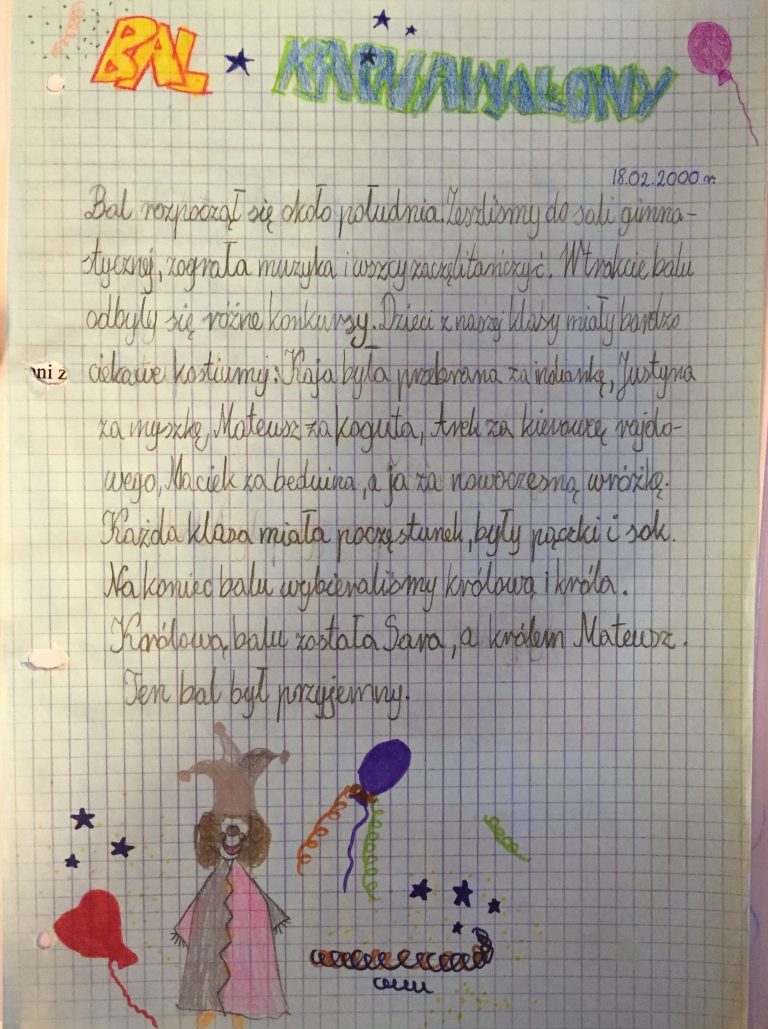 BAL KARNAWAŁOWY
18.02.2000 r.
Bal rozpoczął się około południa. Zeszliśmy do sali gimna-
stycznej, zagrała muzyka i wszcy zaczęli tańczyć. W trakcie balu
odbyły się różne konkursy. Dzieci z naszej klasy miały bardzo
ciekawe kostiumy: Kaja była przebrana za indiankę, Justyna
za myszkę, Mateusz za koguta, Arek za kierowcę rajdo-
wego, Maciek za beduina, a ja za nowoczesną wróżkę.
Każda klasa miała poczęstunek, były pączki i sok.
Na koniec balu wybieraliśmy królową i króla.
Królową balu została Sara, a królem Mateusz.
Ten bal był przyjemny.
ni z